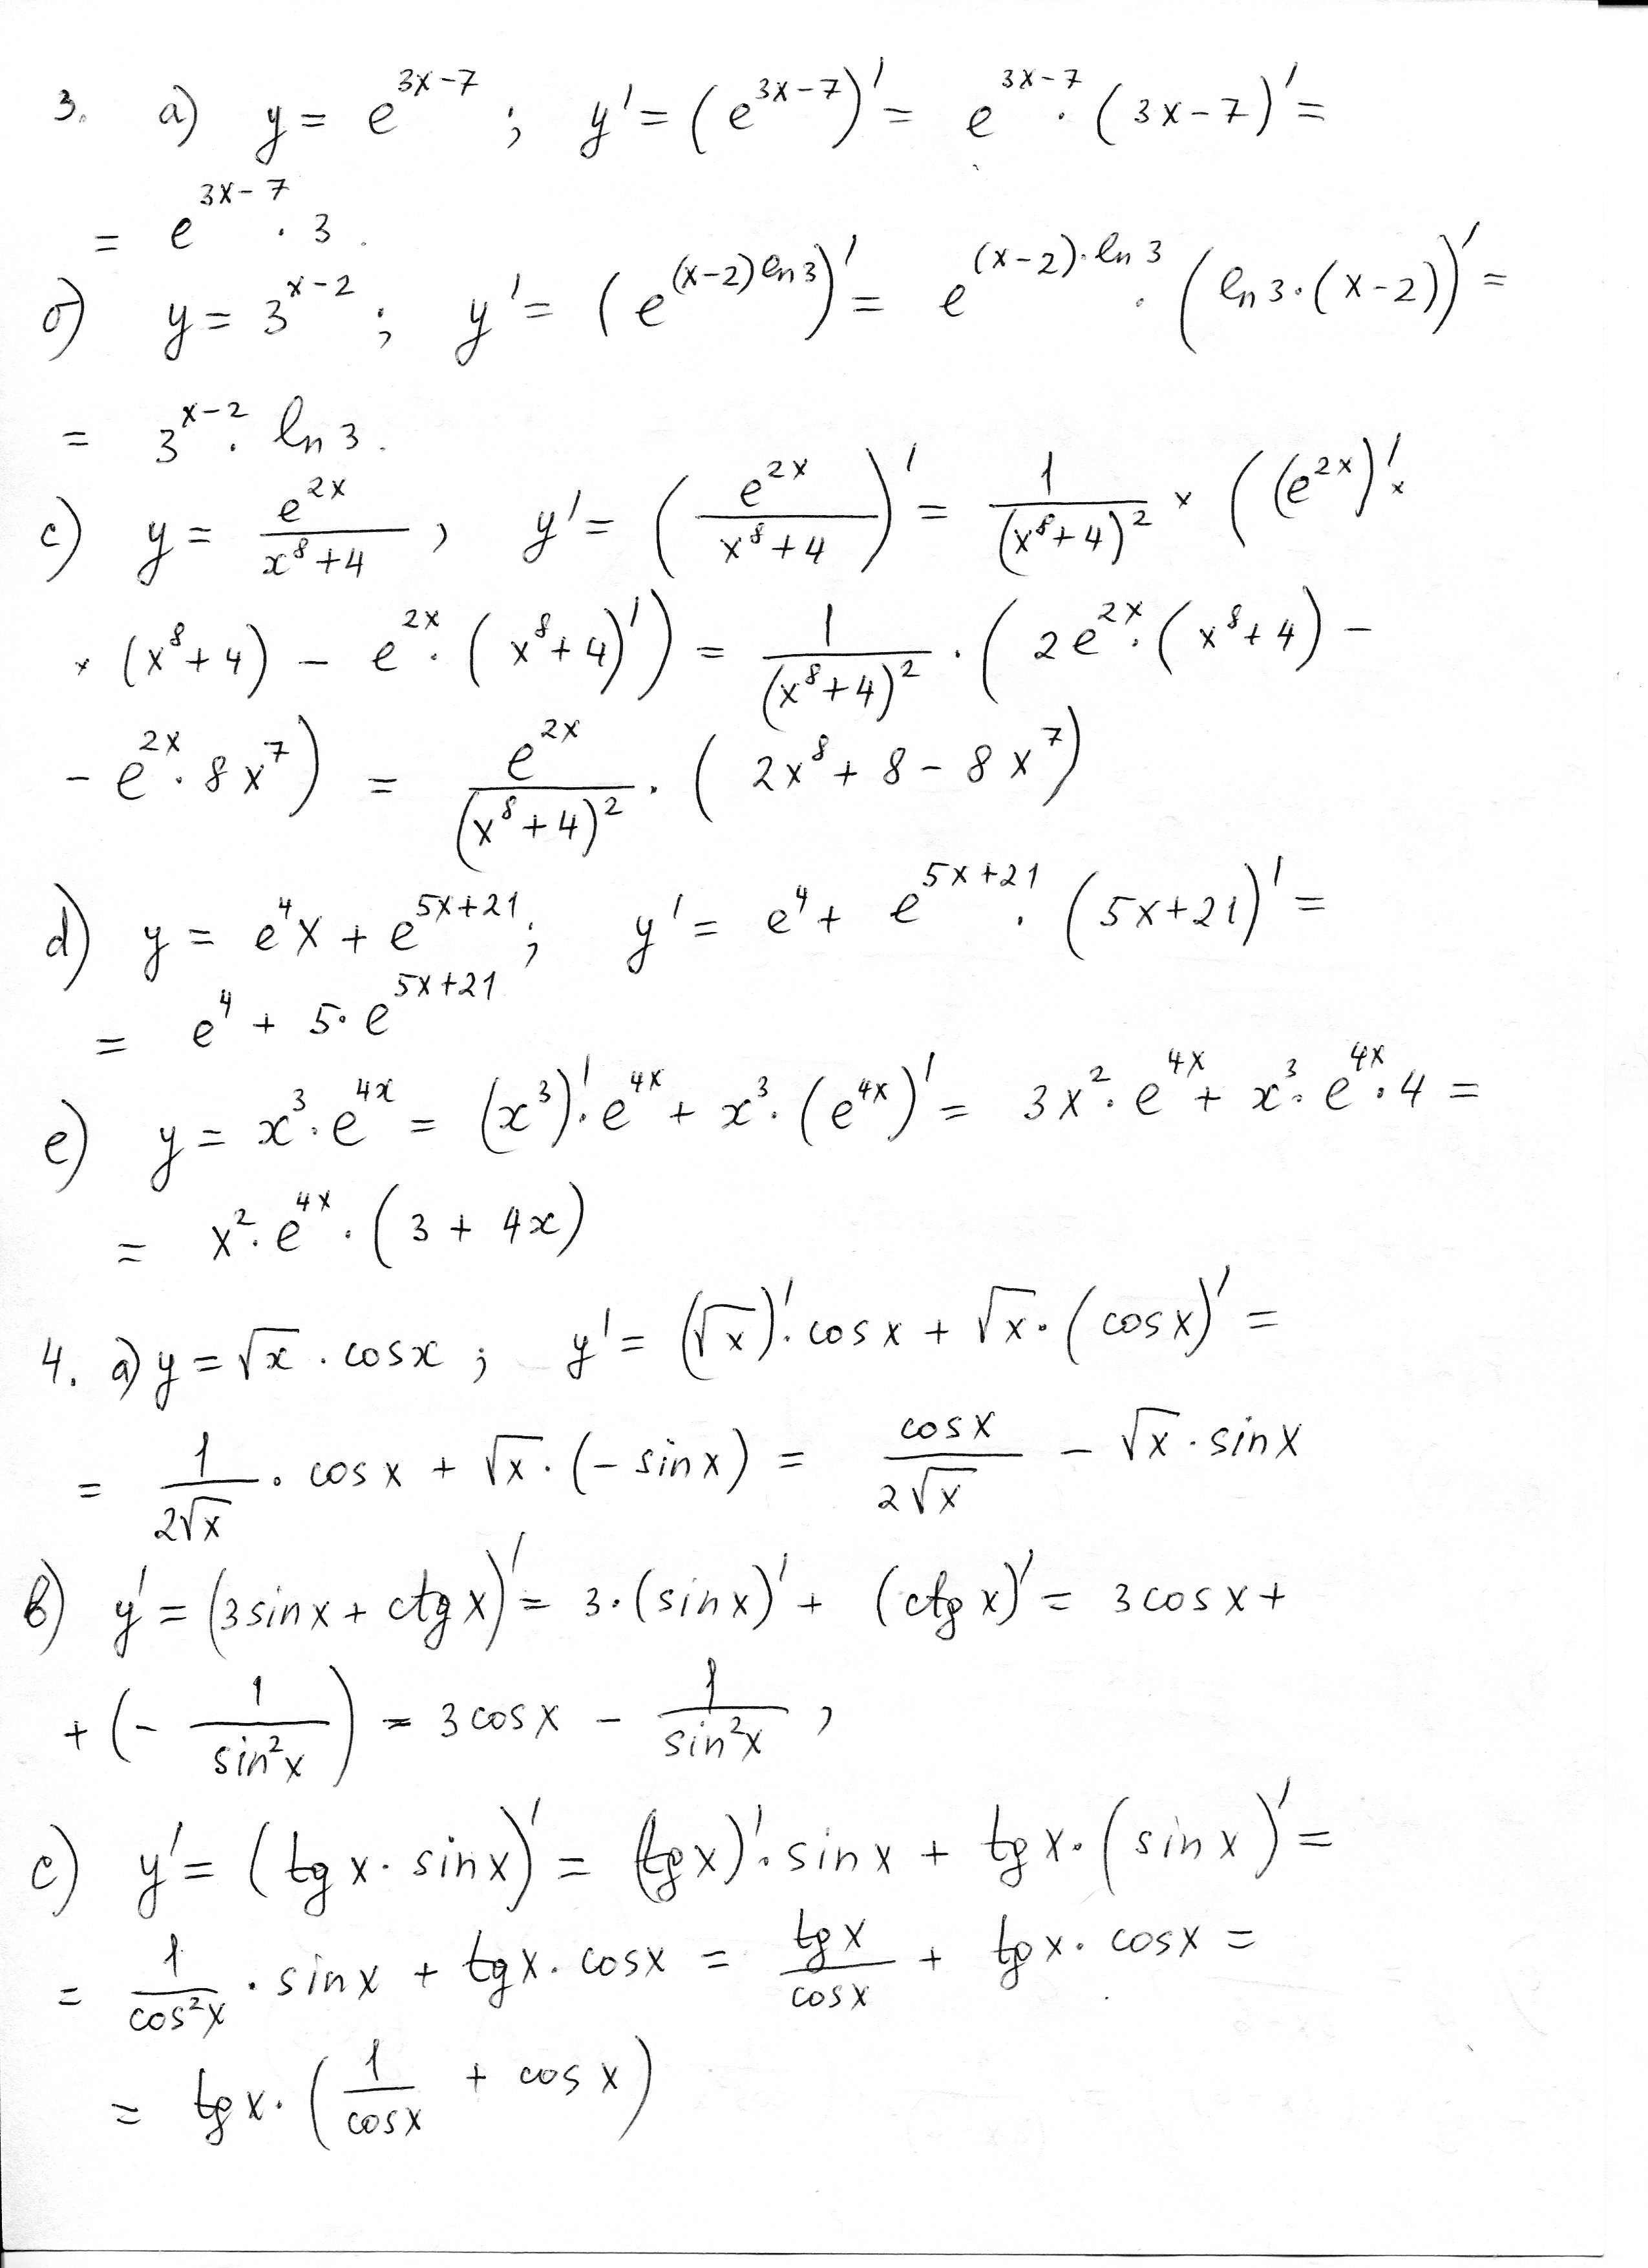 3. а) y = e^(3x-7) ; y' = (e^(3x-7))' = e^(3x-7) · (3x-7)' =
= e^(3x-7) · 3.
б) y = 3^(x-2) ; y' = (e^((x-2) ln 3))' = e^((x-2)·ln 3) · (ln 3·(x-2))' =
= 3^(x-2) · ln 3.
c) y = e^(2x)/(x^8+4) , y' = (e^(2x)/(x^8+4))' = 1/(x^8+4)^2 × ((e^(2x))' ×
× (x^8+4) - e^(2x) · (x^8+4)') = 1/(x^8+4)^2 · (2e^(2x) · (x^8+4) -
- e^(2x) · 8x^7) = e^(2x)/(x^8+4)^2 · (2x^8 + 8 - 8x^7)
d) y = e^4 x + e^(5x+21) ; y' = e^4 + e^(5x+21) · (5x+21)' =
= e^4 + 5 · e^(5x+21)
e) y = x^3 · e^(4x) = (x^3)' · e^(4x) + x^3 · (e^(4x))' = 3x^2 · e^(4x) + x^3 · e^(4x) · 4 =
= x^2 · e^(4x) · (3 + 4x)
4. а) y = √x · cosx ; y' = (√x)' · cosx + √x · (cosx)' =
= 1/(2√x) · cosx + √x · (-sinx) = cosx/(2√x) - √x · sinx
в) y' = (3sinx + ctgx)' = 3·(sinx)' + (ctgx)' = 3cosx +
+ (- 1/sin^2x) = 3cosx - 1/sin^2x ,
c) y' = (tgx · sinx)' = (tgx)' · sinx + tgx · (sinx)' =
= 1/cos^2x · sinx + tgx · cosx = tgx/cosx + tgx · cosx =
= tgx · (1/cosx + cosx)